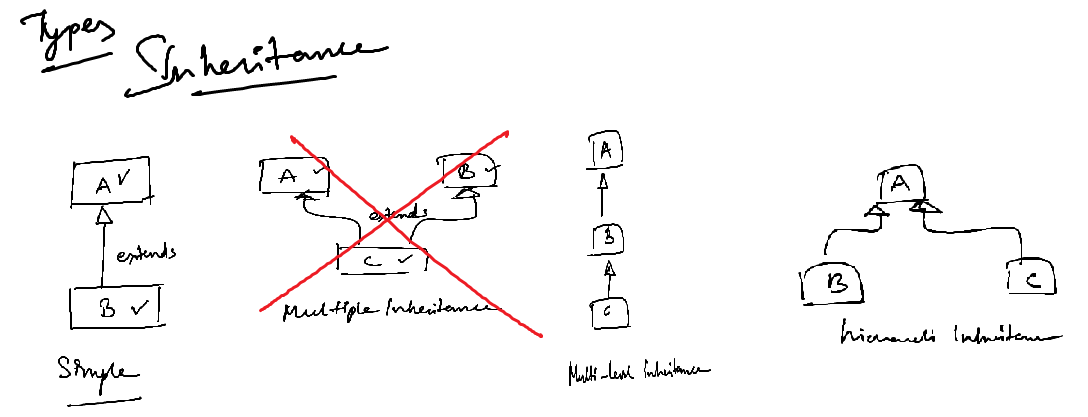 Types
Inheritance
A
extends
B
Simple
A B
extends
C
Multiple Inheritance
A
B
C
Multi-level Inheritance
A
B C
Inheritance